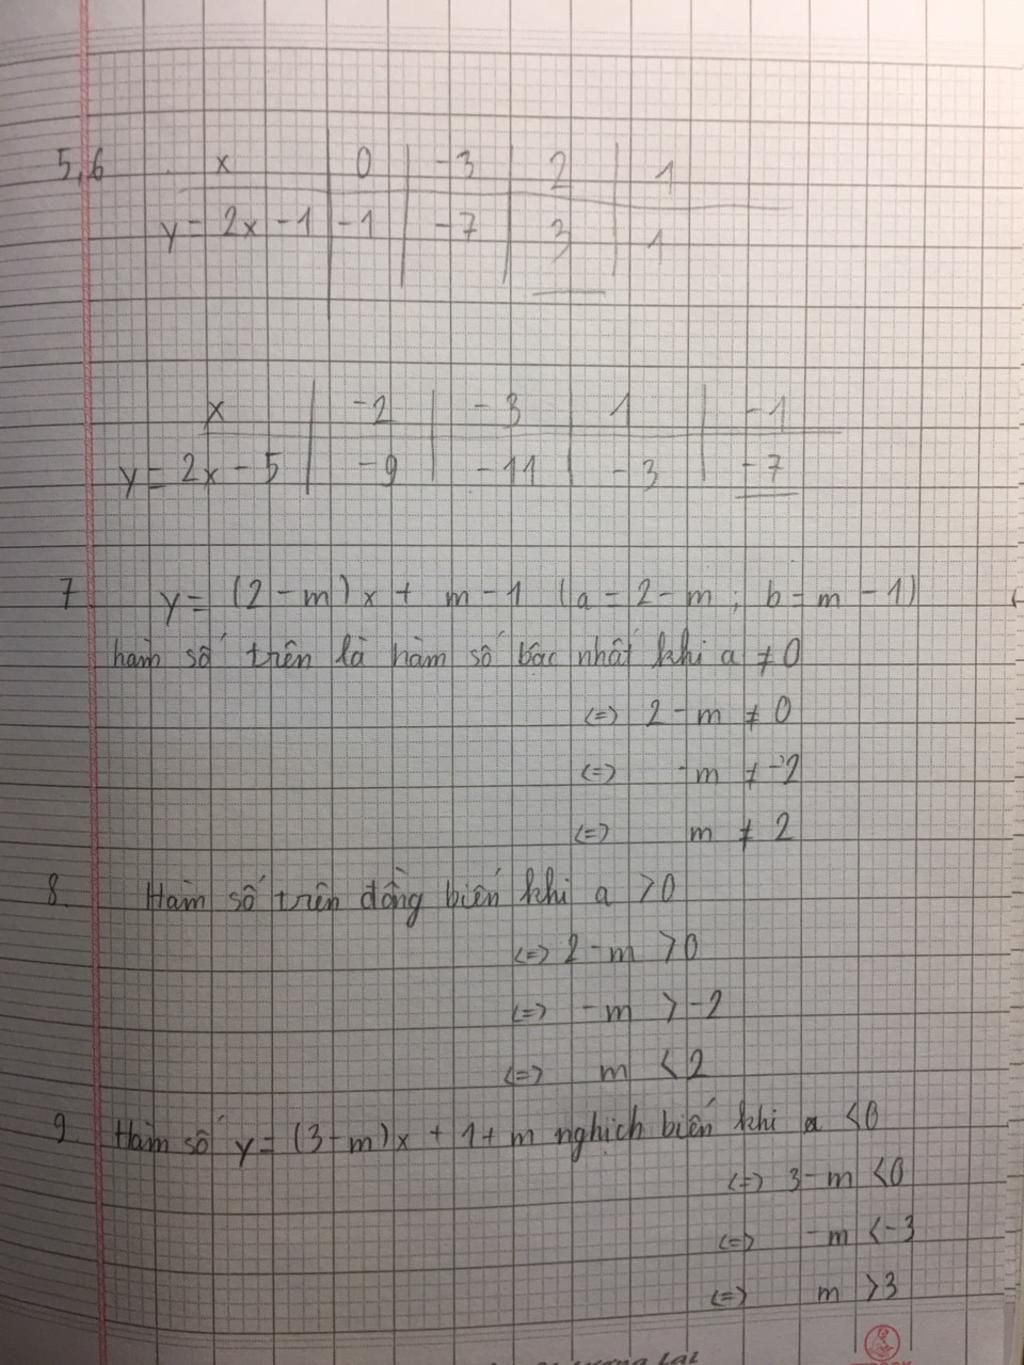 5,6 x 0 -3 2 1
y = 2x - 1 -1 -7 3 1
x -2 -3 1 -1
y = 2x - 5 -9 -11 -3 -7
7 y = (2 - m)x + m - 1 (a = 2 - m ; b = m - 1)
hàm số trên là hàm số bậc nhất khi a ≠ 0
<=> 2 - m ≠ 0
<=> -m ≠ -2
<=> m ≠ 2
8. Hàm số trên đồng biến khi a > 0
<=> 2 - m > 0
<=> -m > -2
<=> m < 2
9. Hàm số y = (3 - m)x + 1 + m nghịch biến khi a < 0
<=> 3 - m < 0
<=> -m < -3
<=> m > 3